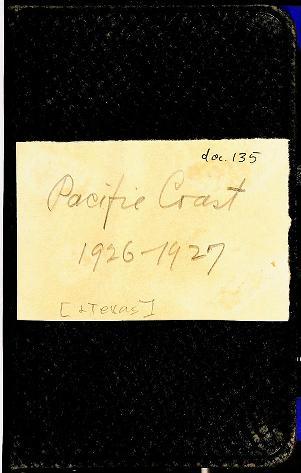 doc. 135
Pacific Coast
1926-1927
[&Texas]